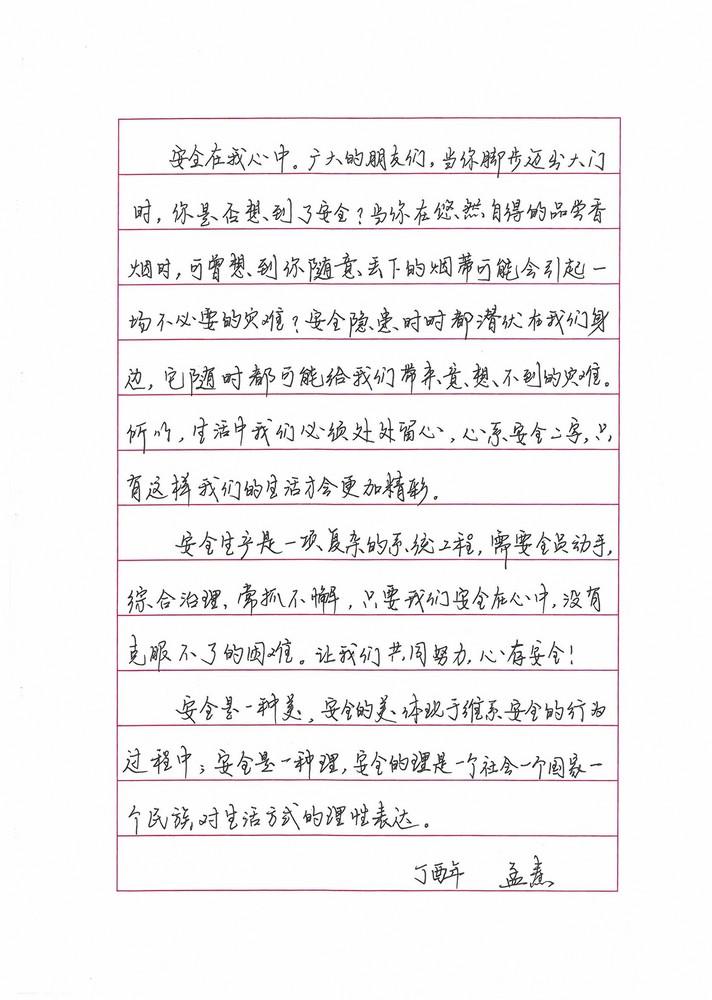 安全在我心中。广大的朋友们，当你脚步迈出大门
时，你是否想到了安全？当你在悠然自得的品尝香
烟时，可曾想到你随意丢下的烟蒂可能会引起一
场不必要的灾难？安全隐患时时都潜伏在我们身
边，它随时都可能给我们带来意想不到的灾难。
所以，生活中我们必须处处留心，心系安全二字，只
有这样我们的生活才会更加精彩。
安全生产是一项复杂的系统工程，需要全员动手，
综合治理，常抓不懈，只要我们安全在心中，没有
克服不了的困难。让我们共同努力，心存安全！
安全是一种美，安全的美体现于维系安全的行为
过程中；安全是一种理，安全的理是一个社会一个国家一
个民族对生活方式的理性表达。
丁酉年 孟